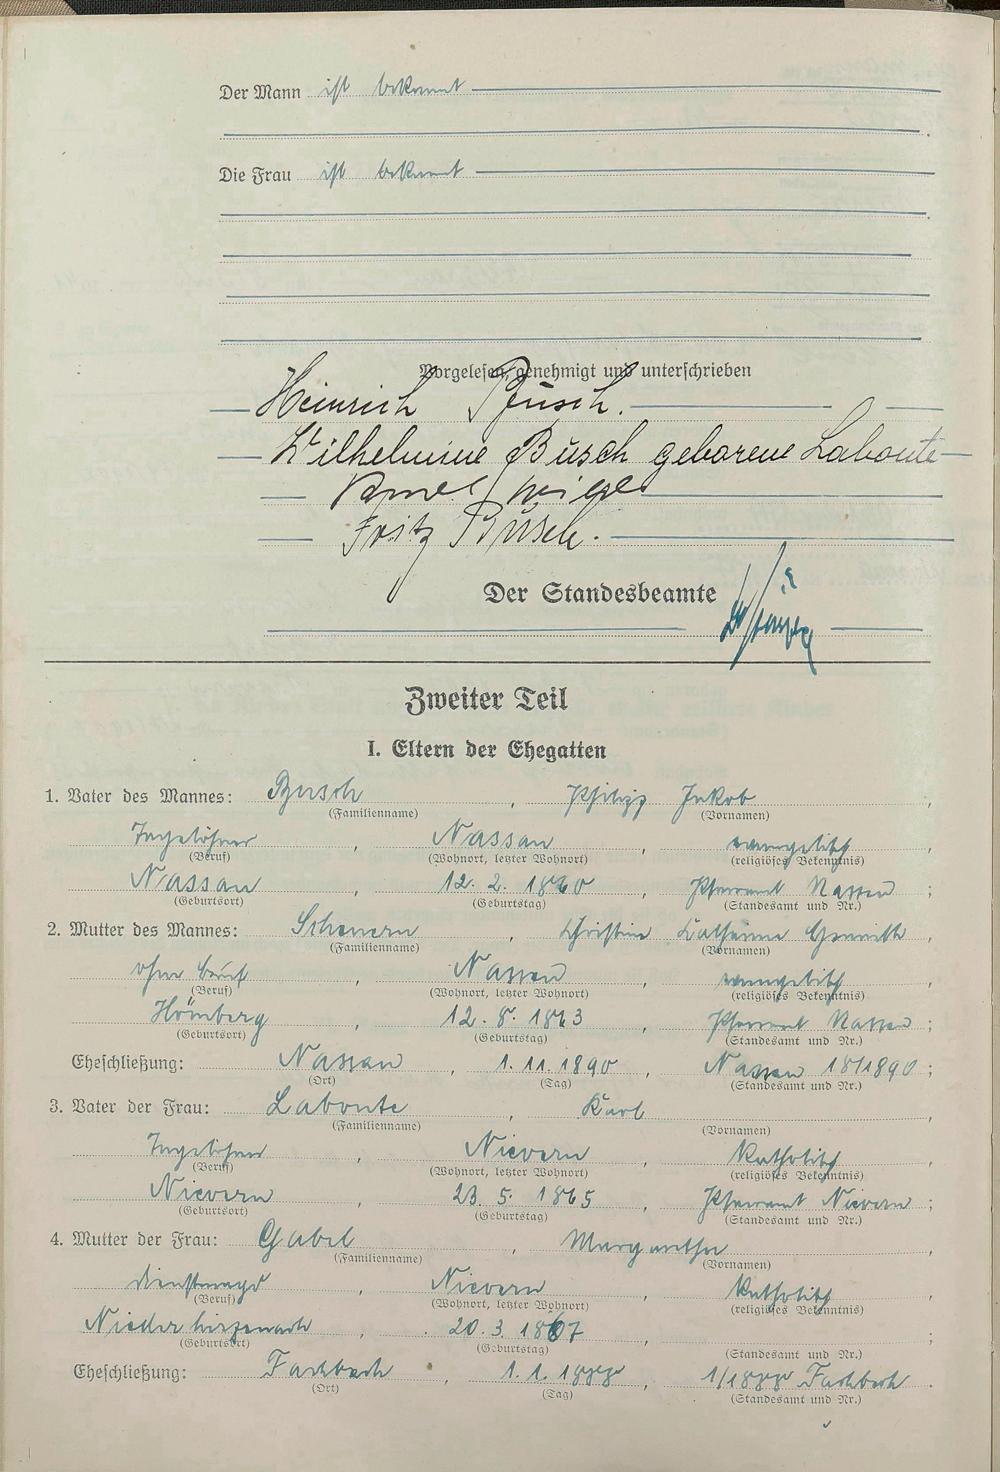 Der Mann ist bekannt
Die Frau ist bekannt
Vorgelesen, genehmigt und unterschrieben
Heinrich Busch.
Wilhelmine Busch geborene Labonte
Fritz Busch.
Der Standesbeamte
Zweiter Teil
I. Eltern der Ehegatten
1. Vater des Mannes: Busch, Philipp Jakob,
(Familienname) (Vornamen)
Tagelöhner, Nassau, evangelisch,
(Beruf) (Wohnort, letzter Wohnort) (religiöses Bekenntnis)
Nassau, 12. 2. 1860, Pfarramt Nassau;
(Geburtsort) (Geburtstag) (Standesamt und Nr.)
2. Mutter des Mannes: Scheuern, Christine Katharina,
(Familienname) (Vornamen)
ohne Beruf, Nassau, evangelisch
(Beruf) (Wohnort, letzter Wohnort) (religiöses Bekenntnis)
Hömberg, 12. 8. 1863, Pfarramt Nassau;
(Geburtsort) (Geburtstag) (Standesamt und Nr.)
Eheschließung: Nassau, 1. 11. 1890, Nassau 18/1890;
(Ort) (Tag) (Standesamt und Nr.)
3. Vater der Frau: Labonte, Karl,
(Familienname) (Vornamen)
Tagelöhner, Nievern, katholisch
(Beruf) (Wohnort, letzter Wohnort) (religiöses Bekenntnis)
Nievern, 23. 5. 1865, Pfarramt Nievern;
(Geburtsort) (Geburtstag) (Standesamt und Nr.)
4. Mutter der Frau: Gabel, Margarethe,
(Familienname) (Vornamen)
Dienstmagd, Nievern, katholisch,
(Beruf) (Wohnort, letzter Wohnort) (religiöses Bekenntnis)
Niederhirzenach, 20. 3. 1867, ;
(Geburtsort) (Geburtstag) (Standesamt und Nr.)
Eheschließung: Fachbach, 1. 1. 1888, 1/1888 Fachbach.
(Ort) (Tag) (Standesamt und Nr.)